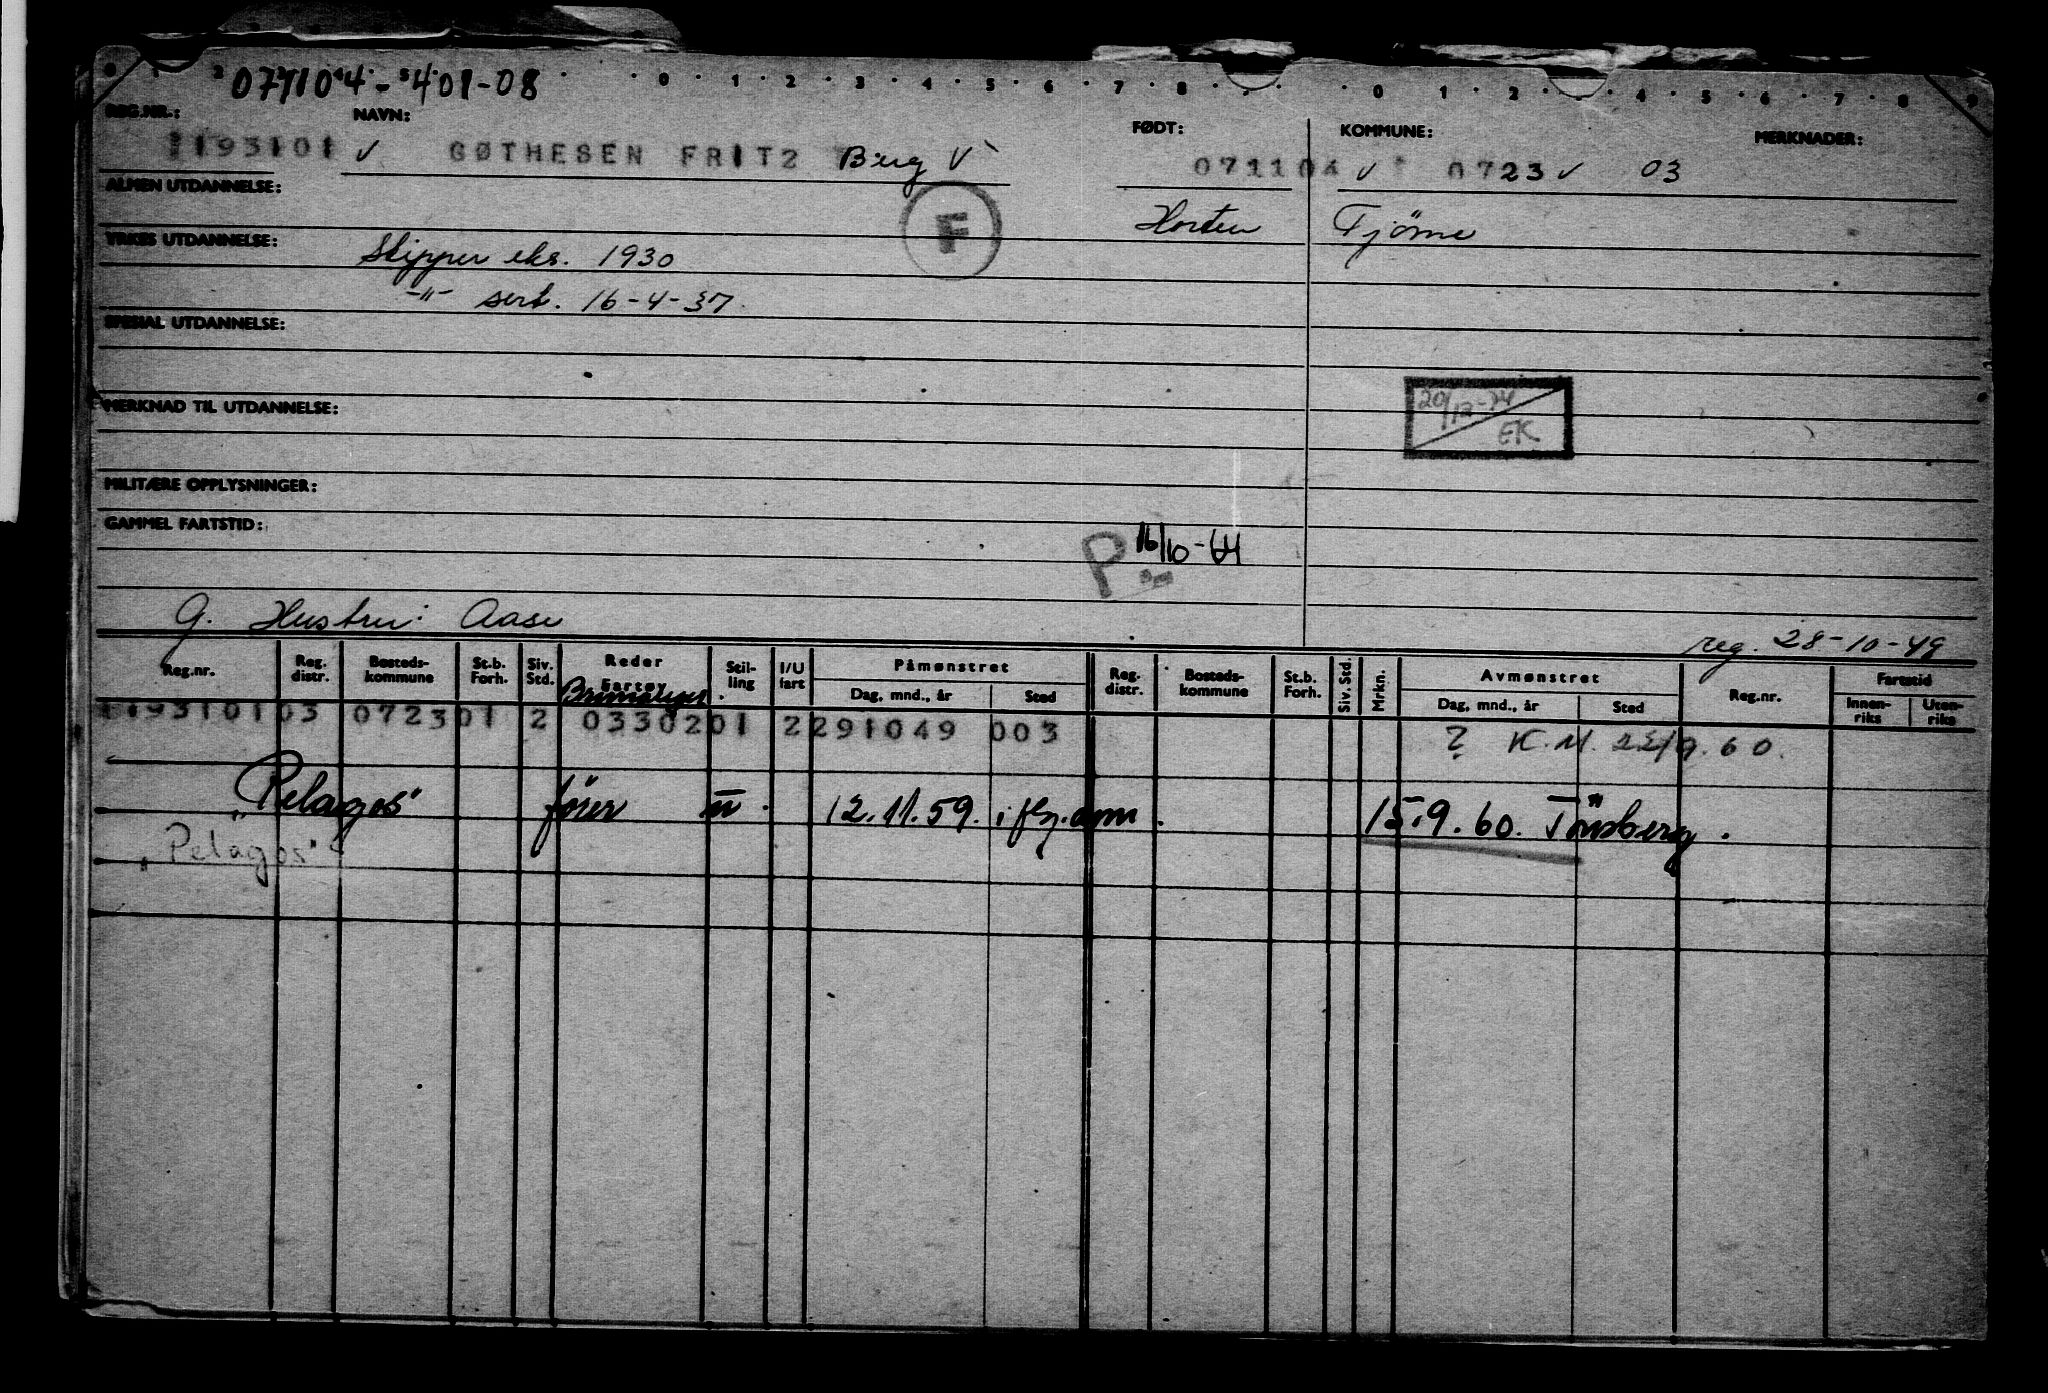 071104-401-08
0 1 2 3 4 5 6 7 8 0 1 2 4 5 6 7 8 9
REG.NR.: NAVN: FØDT: KOMMUNE: MERKNADER:
1193101 ✓ GØTHESEN FRITZ Birg V 071104 ✓ 0723 ✓ 03
ALMEN UTDANNELSE:
F Horten Tjöme
YRKES UTDANNELSE: Skipper eks. 1930
-"- sert. 16-4-37
SPESIAL UTDANNELSE:
20/12-74
EK
MERKNAD TIL UTDANNELSE:
MILITÆRE OPPLYSNINGER:
GAMMEL FARTSTID:
P 16/10-64
G. Hustru: Aase
reg. 28-10-49
Reg.nr. Reg. distr. Bosteds-kommune St.b. Forh. Siv. Std. Reder Fartøy Stil-ling I/U fart Påmønstret Dag, mnd., år Sted Reg. distr. Bosteds-kommune St.b. Forh. Siv. Std. Mrkn. Avmønstret Dag, mnd., år Sted Reg.nr. Fartstid Innen-riks Uten-riks
1193101 03 0723 01 2 0330201 2 291049 003 ? K.M. 22/9.60.
"Pelagos" fører u. 12.11.59. i flg. avm. 15.9.60. Tönsberg.
"Pelagos"